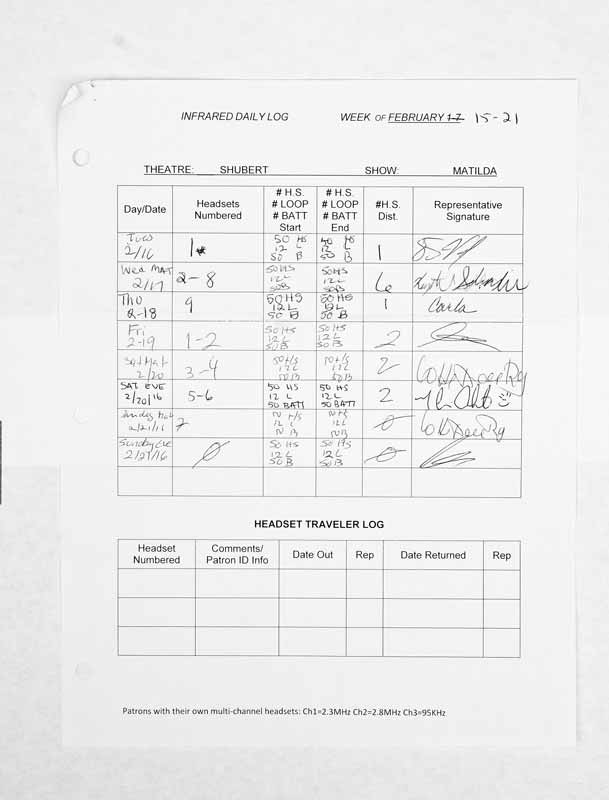 INFRARED DAILY LOG WEEK OF FEBRUARY 17 15-21
THEATRE: SHUBERT SHOW: MATILDA
Day/Date Headsets Numbered # H.S. # LOOP # BATT Start # H.S. # LOOP # BATT End #H.S. Dist. Representative Signature
Tues 2/16 1 50 HS 12 L 50 B 50 HS 12 L 50 B 1
Wed MAT 2/17 2-8 50HS 12L 50B 50HS 12L 50B 6
Thu 2-18 9 50 HS 12L 50 B 50 HS 12L 50 B 1 Carla
Fri 2-19 1-2 50 HS 12L 50B 50 HS 12L 50B 2
Sat Mat 2/20 3-4 50 H/S 12L 50B 50 H/S 12L 50B 2
SAT EVE 2/20/16 5-6 50 HS 12 L 50 BATT 50 HS 12 L 50 BATT 2
Sunday Mat 2/21/16 7 H/S 12 L B H/S 12L B 0
Sunday Eve 2/21/16 0 50 HS 12L 50B 50 HS 12L 50 B 0
HEADSET TRAVELER LOG
Headset Numbered Comments/ Patron ID Info Date Out Rep Date Returned Rep
Patrons with their own multi-channel headsets: Ch1=2.3MHz Ch2=2.8MHz Ch3=95KHz